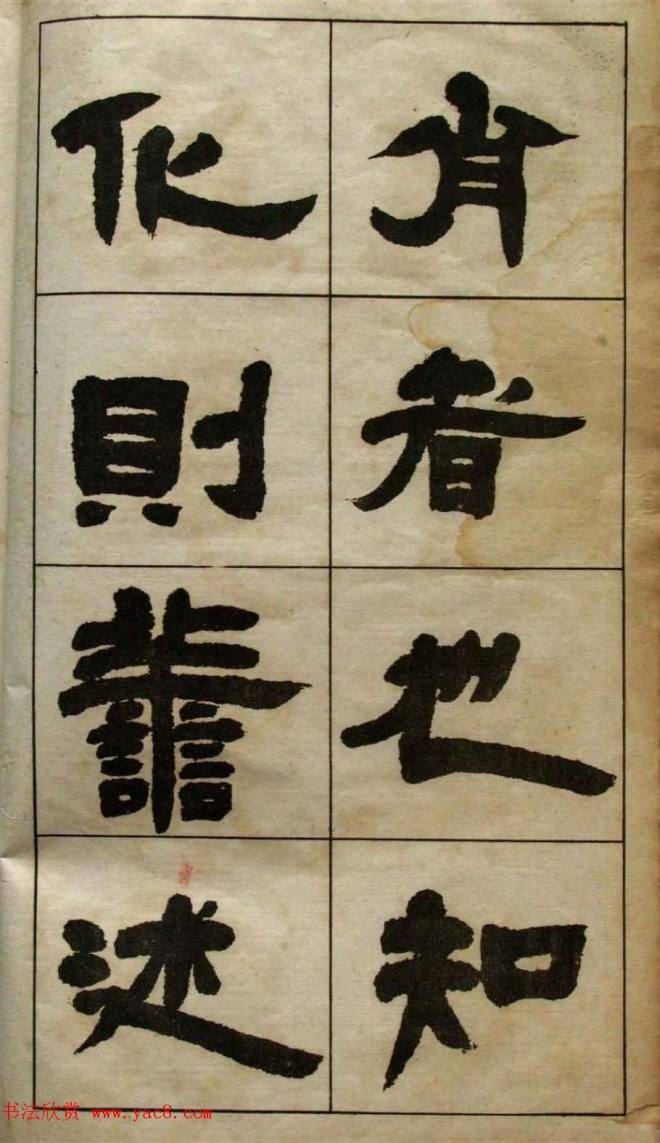 肖者也知
化則譱述
书法欣赏 www.yac8.com